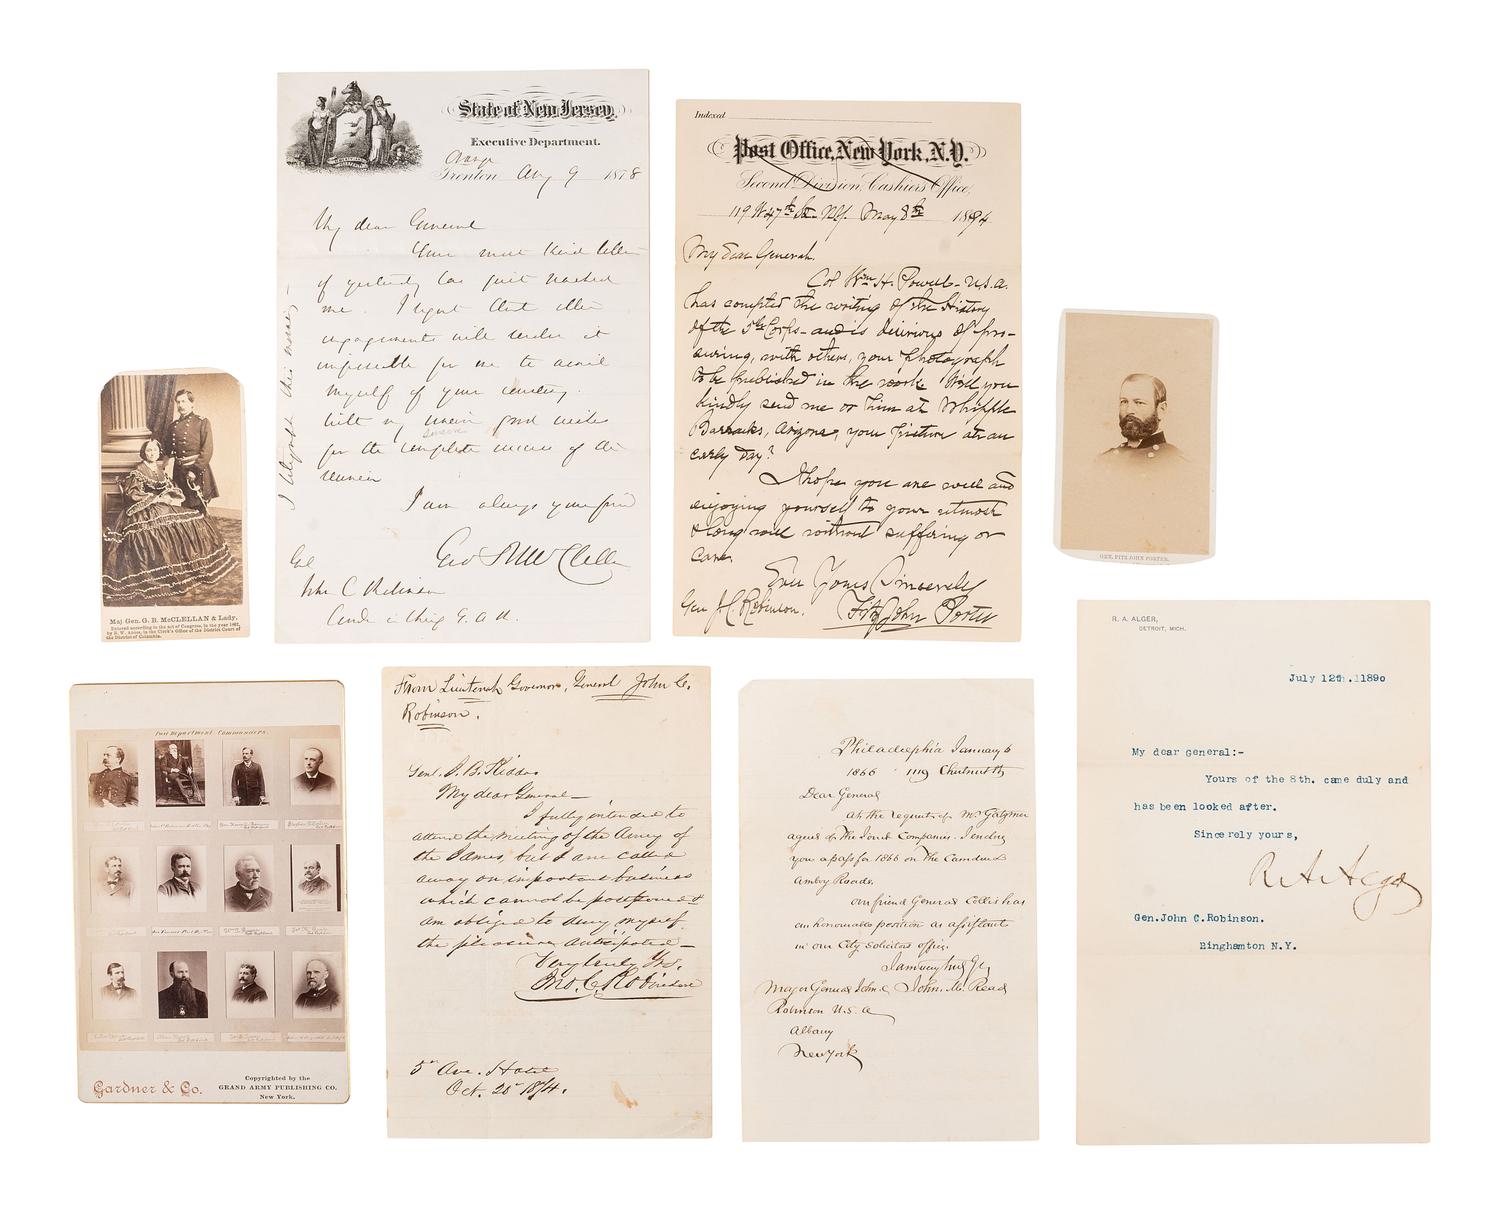 State of New Jersey,
Executive Department.
Orange
Trenton Aug 9 1878
My dear General
Your most kind letter
of yesterday has just reached
me. I regret that other
engagements will render it
impossible for me to avail
myself of your courtesy.
With my warm good wishes
for the complete success of the
reunion
I am always your friend
Geo B McClellan
Gnl
John C Robinson
Comdr in Chief G.A.R.
I telegraph this morning
Indexed
Post Office, New York, N.Y.
Second Division, Cashiers Office,
119 W 47th St NY. May 8th 1894
My Dear General.
Col Wm H. Powell - U.S.A.
has compted the writing of the History
of the 5th Corps - and is desirous of pro-
curing, with others, your photograph
to be published in the work. Will you
kindly send me or him at Whipple
Barracks, Arizona, your picture at an
early day?
I hope you are well and
enjoying yourself to your utmost
& long will without suffering or
care.
Ever Yours Sincerely
Fitz John Porter
Gen J. C. Robinson.
Maj Gen. G. B. McCLELLAN & Lady.
Entered according to the act of Congress, in the year 1862,
by in the Clerk's Office of the District Court of
the District of Columbia.
GEN. FITZ JOHN PORTER.
Past Department Commanders.
Gardner & Co.
Copyrighted by the
GRAND ARMY PUBLISHING CO.
New York.
From Lieutenant Governor, General John C.
Robinson.
Genl. J. B.
My dear General—
I fully intended to
attend the meeting of the Army of
the James, but I am called
away on important business
which cannot be postponed &
am obliged to deny myself
the pleasure anticipated—
Very truly Yrs.
Jno. C. Robinson
5th Ave. Hotel
Oct. 20th 1874.
Philadelphia January 6
1866 1119 Chestnut St
Dear General
At the request of Mr Gatzmer
agent of The Joint Companies. I enclose
you a pass for 1866 on The Camden &
Amboy Roads.
Our friend General Collis has
an honorable position as assistant
in our City Solicitors office.
I am very truly Yr,
John. M. Read
Major General John. C
Robinson U.S.A
Albany
New York
R. A. ALGER,
DETROIT, MICH.
July 12th.1890
My dear General:-
Yours of the 8th. came duly and
has been looked after.
Sincerely yours,
R A Alger
Gen.John C.Robinson.
Binghamton N.Y.